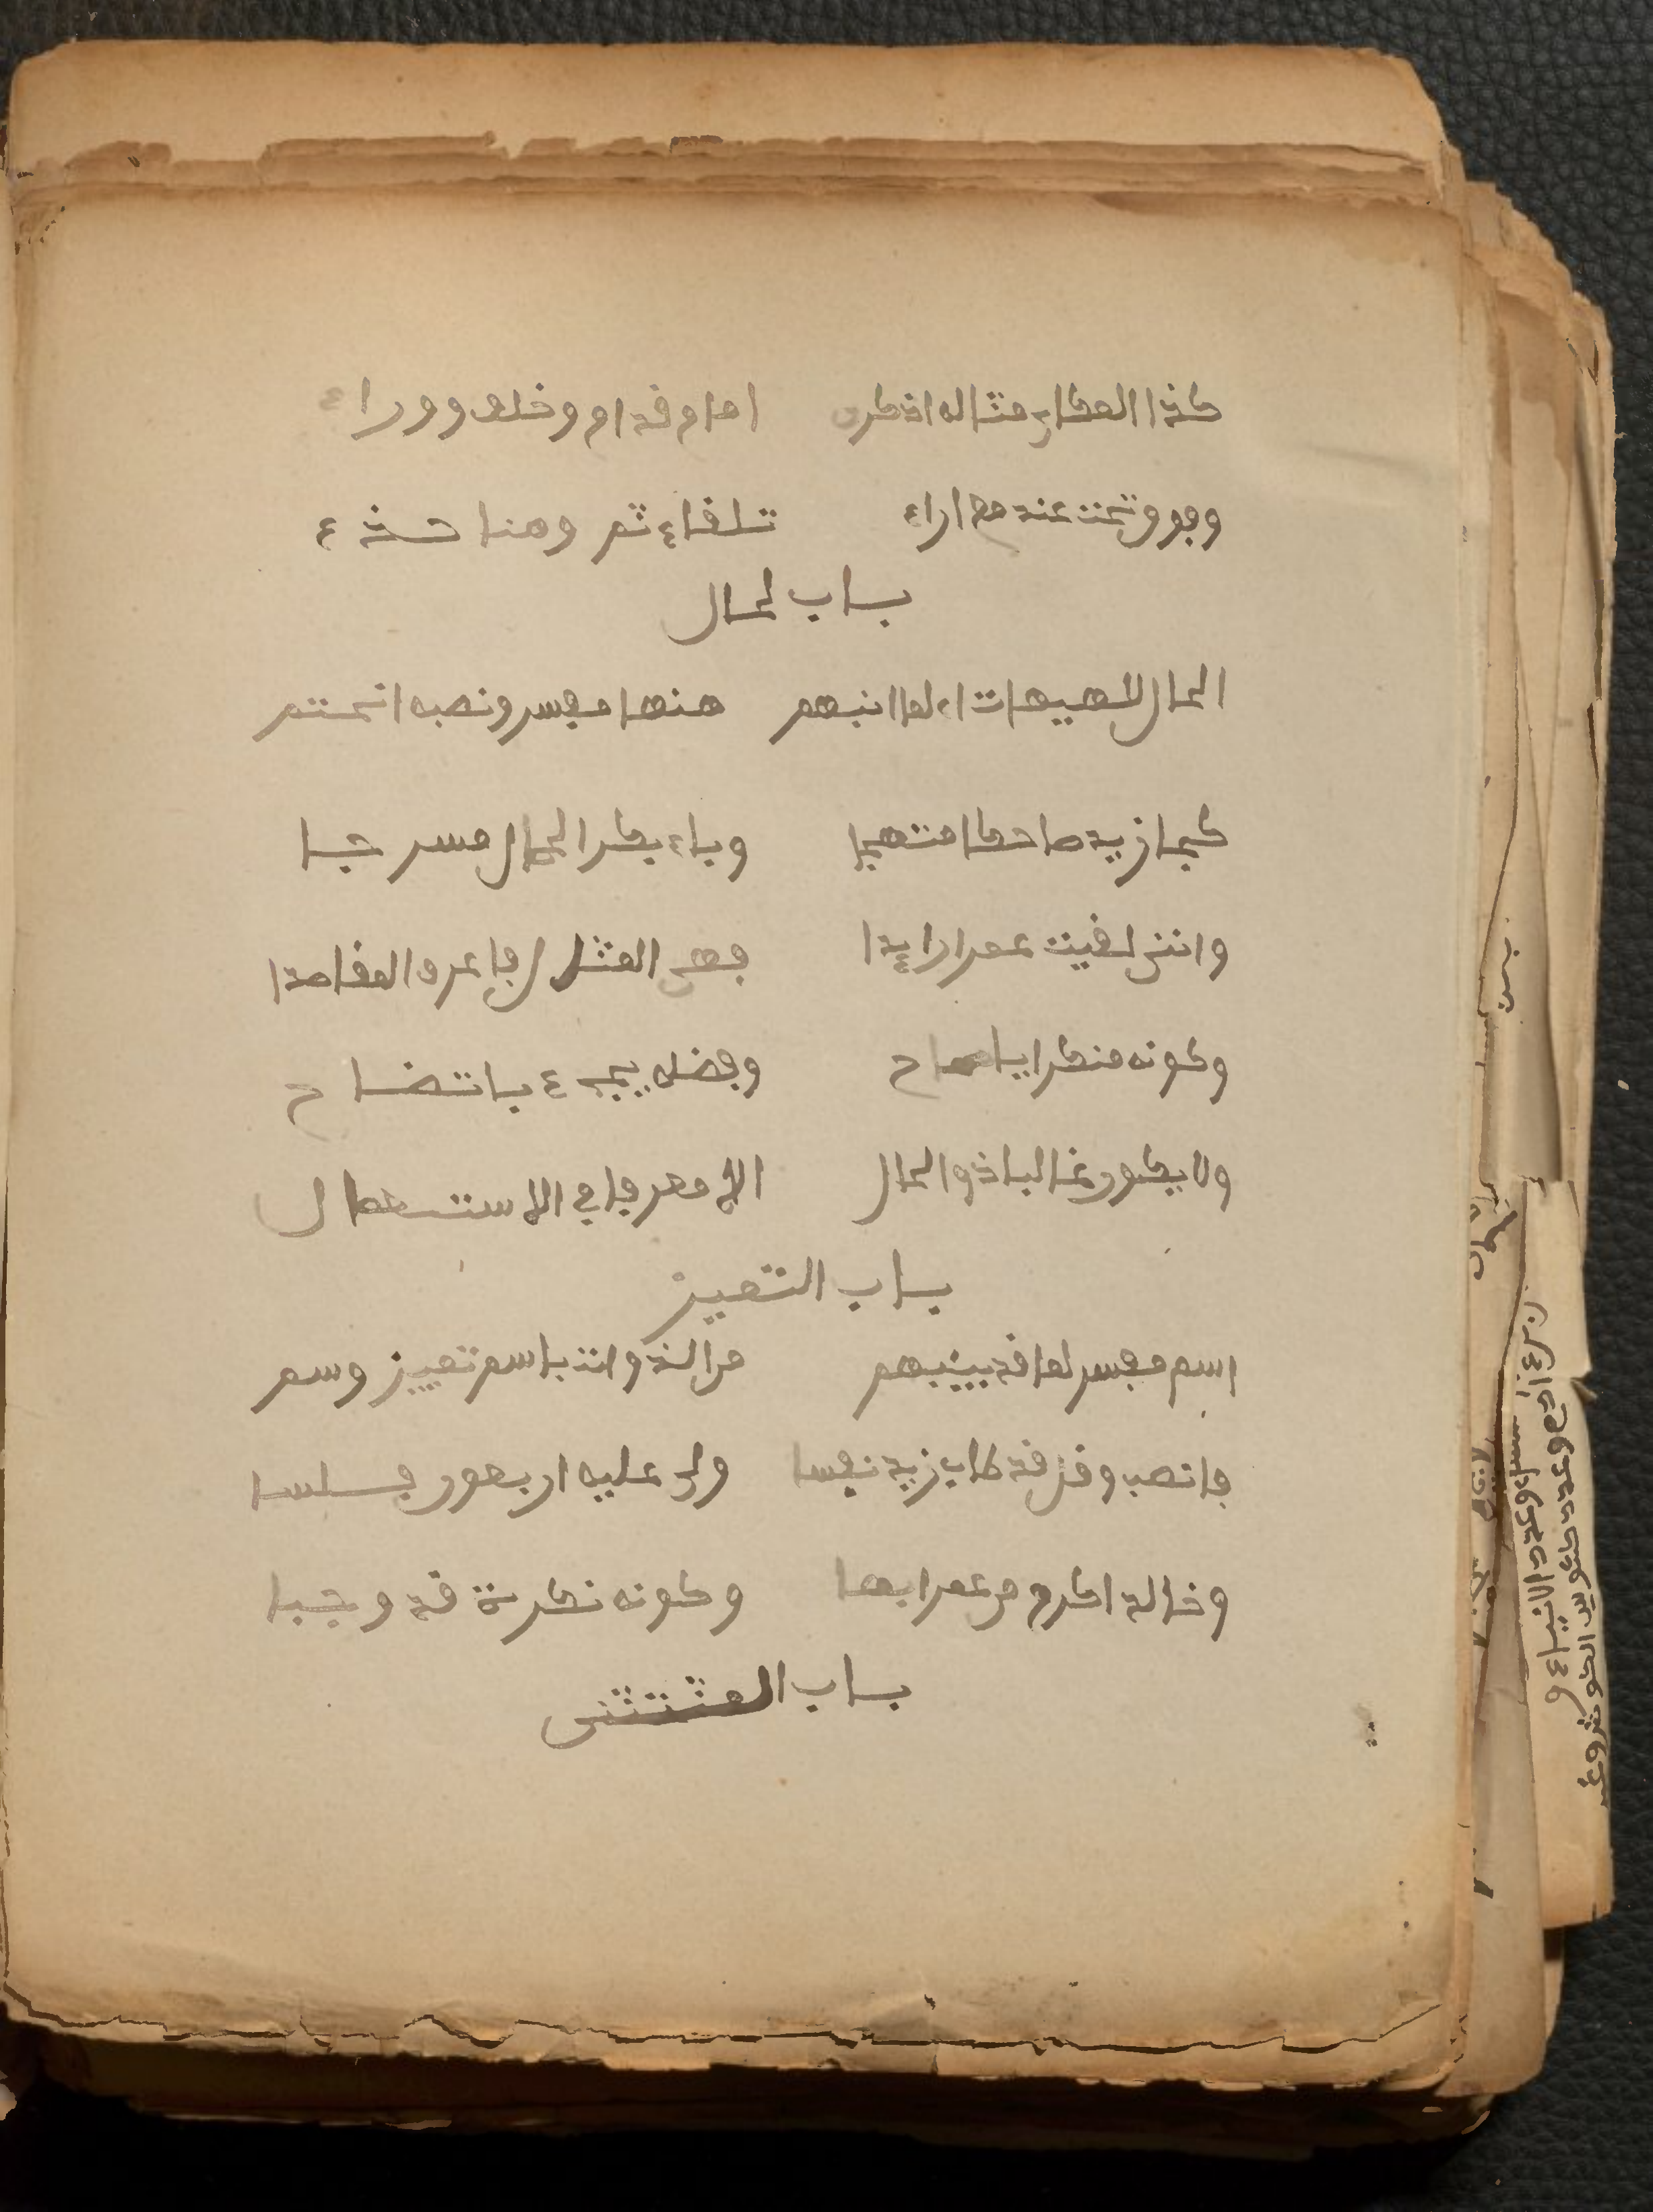 كذا المكاني مثاله اذكرن امام قدام وخلف ووراء
وفوق تحت عند مع ازاء تلقاء ثم وهنا حذء
باب لحال
الحال للهيهات اي لما انبهم منها مفسر ونصبه انحتم
كجا زيد ضاحكا منتهجا وباع بكر الحصان مسرجا
وانني لقيت عمرا رايدا فعي المثال فاعرف المقاصدا
وكونه منكرا يا صاح وفضله يجيء باتضاح
ولا يكون غالبا ذو الحال الا معرفا في الاستعمال
باب التمييز
اسم مفسر لما قد يينبهم من الذوات باسم تمييز وسم
فانصب وقل قد طاب زيد نفسا ولي عليه اربعون فلسا
وخالد اكرم من عمر ابا وكونه نكرة قد وجبا
باب المثتثنى